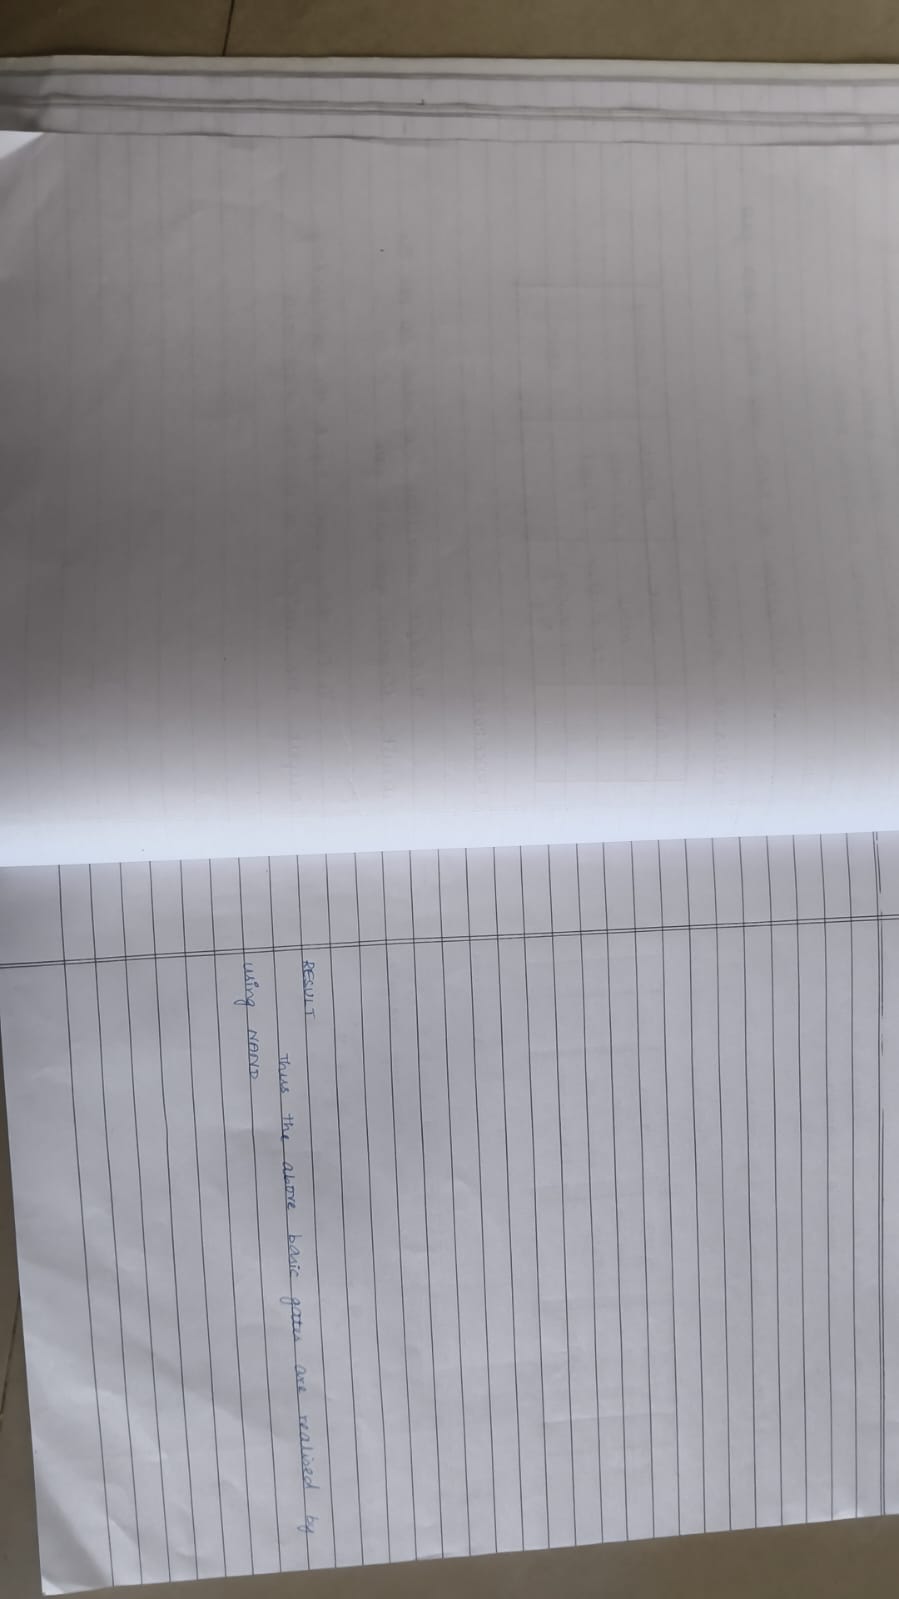 RESULT
Thus the above basic gates are realized by
using NAND